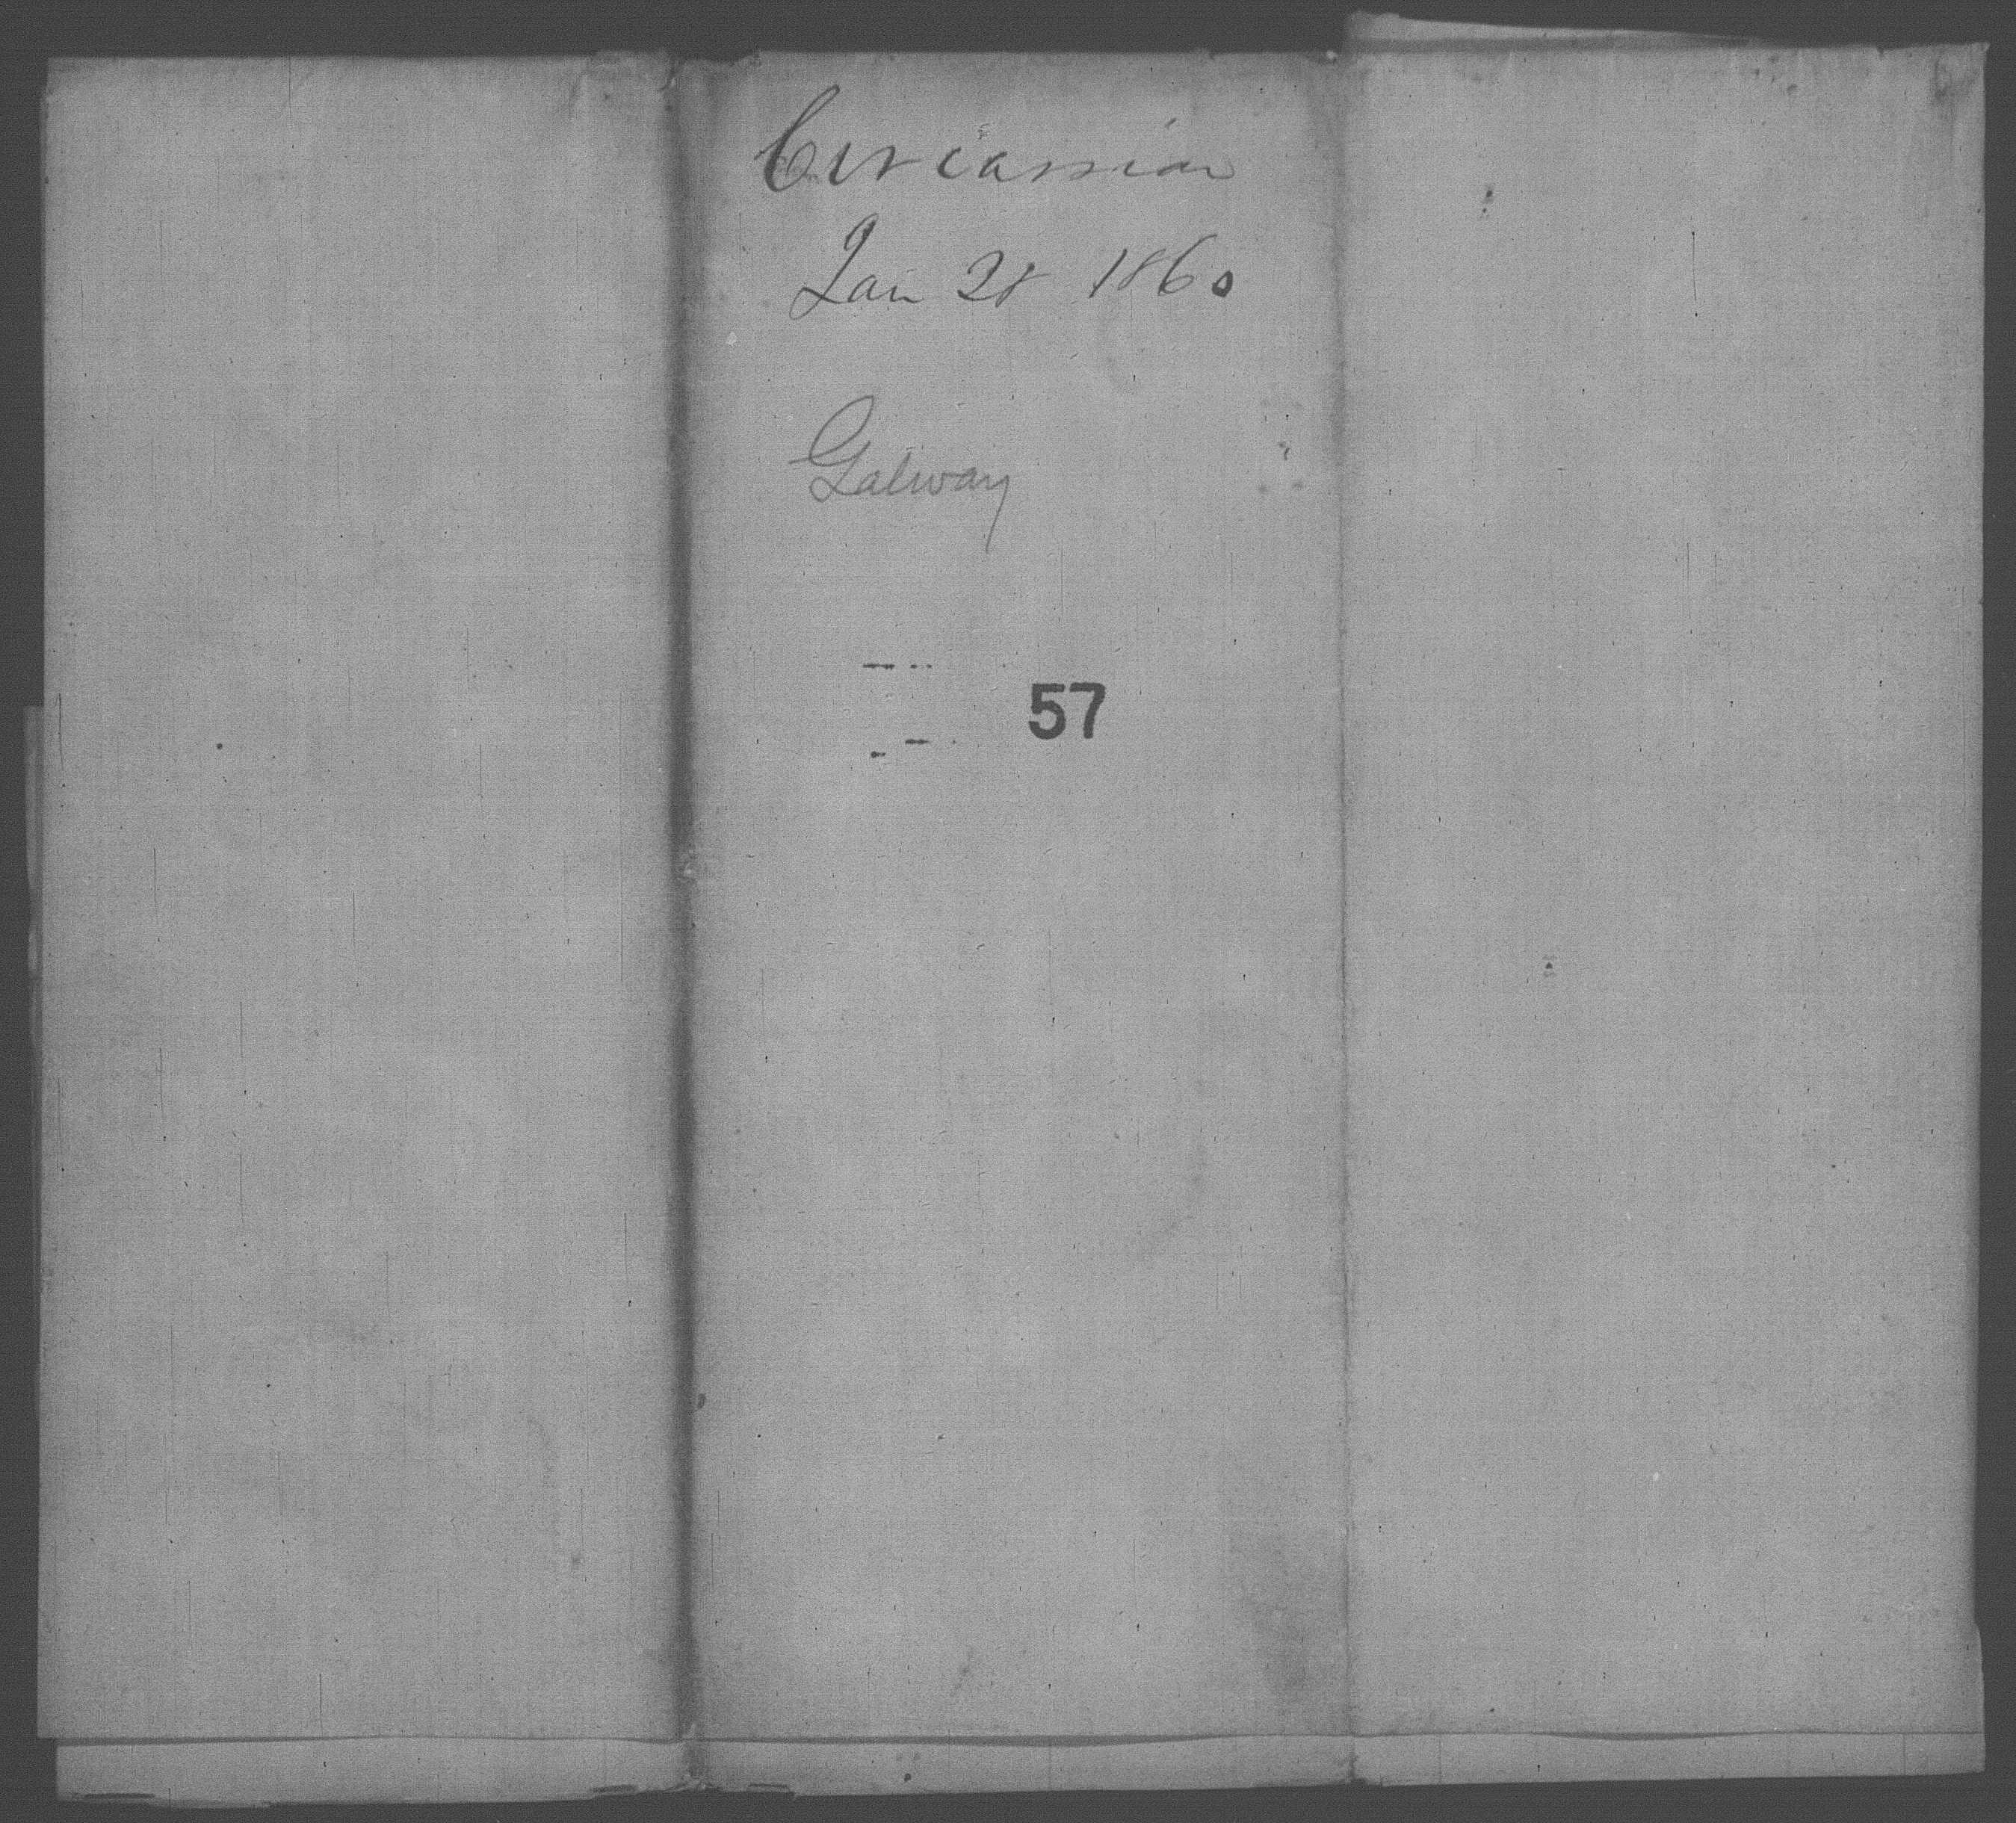 Circassian
Jan 28 1860
Galway
57